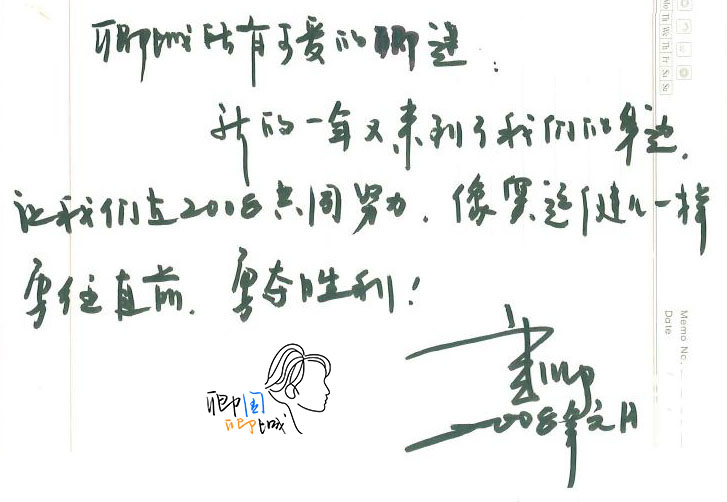 Mo Tu We Th Fr Sa Su
聊城所有可爱的聊迷：
新的一年又来到了我们的身边，
让我们在2008共同努力，像奥运健儿一样
勇往直前，勇夺胜利！
Memo No.
Date
2008年元月
聊国
聊城